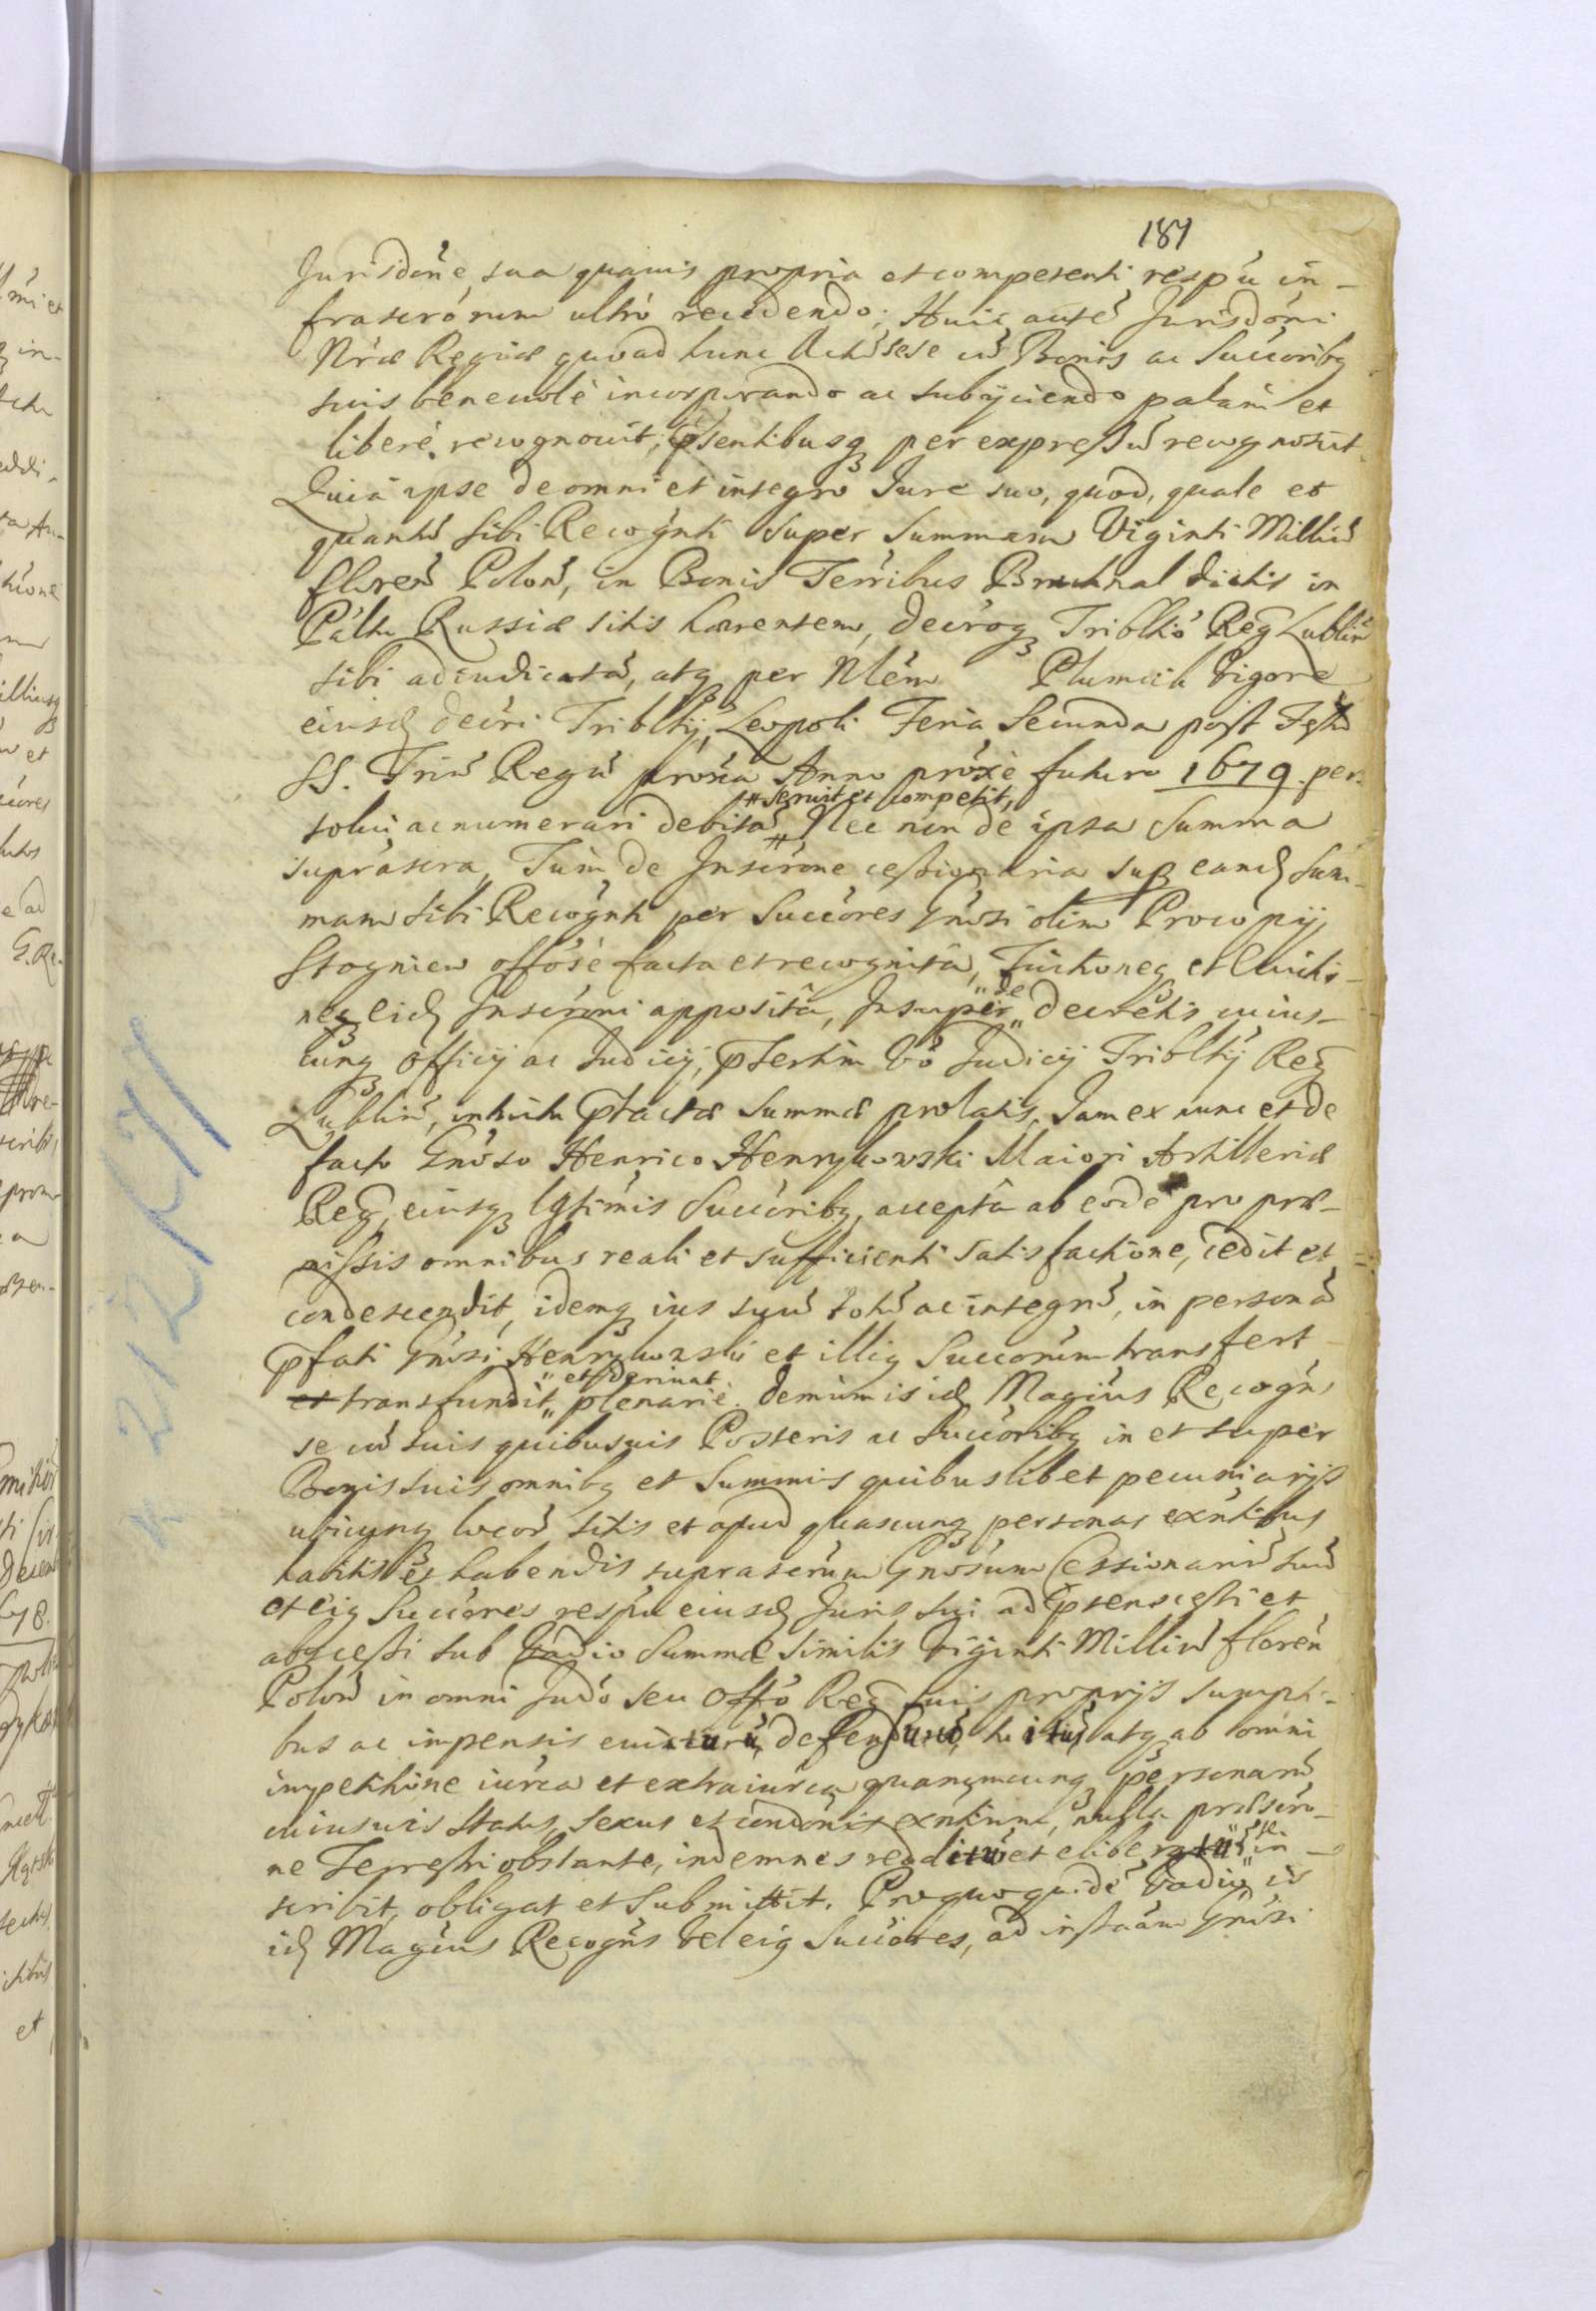 187
Jurisdóne sua quauis propria et competenti, respú in-
frascrórum ultró recedendo; Huic auté Jurisdóni
Nrae Regiae quoad hunc Actú sese cú Bonis ac Succóribq
suis beneuolè incorporando ac subijciendo palam et
liberè recognouit; pñtentibusq per expressú recognoscit.
Quia ipse de omni et integro Jure suo, quod, quale et
quantú sibi Recogñti super Summam Viginti Milliú
floreñ Poloñ, in Bonis Terribus Bruchnal dictis in
Páltu Russiae sitis haerentem, decróq Triblko Reg Lubliñ
sibi adiudicatá, atq per Nlém Plumcik vigore
eiusd decri Triblkij, Leopoli Feria Secunda post Festú
SS. Triú Regú proxia Anno próxè futuro 1679. per-
"seruit et competit,
solui ac numerari debitá" Nec non de ipsa Summa
suprascra, Túm de Inscróne cessionaria sup eand Sum-
mam sibi Recogñti per Succóres Gñosi olim Procopij
Stogniew offósè facta et recognita, Tuitioneq et Euictio-
"de
neq eid Inscróni apposita, Insuper" decretis cuius-
cunq officij ac Judicij, ptertim vó Judicij Triblkij Reg
Lubliñ, intuitu ptactae Summae prolatis, Jam ex nunc et de
facto Gñoso Henrico Henrykowski Maiori Artilleriae
Reg, eiusq lgtimis Succóribq, accepta ab eodè pro prae-
missis omnibus reali et sufficienti satisfactione, cedit et
condescendit, idemq ius suú totú ac integrú, in personá
pfati Gñosi Henrykowski et illiq Succorum transfert
"et deriuat
et transfundit" plenarie. Demùm is id Magcus Recogñs
se cú suis quibusuis Posteris ac Succóribq in et super
Bonis suis omnibq et Summis quibuslibet pecuniarijs
ubicunq locor sitis et apud quascunq personas exñtibus
habitis et habendis suprascrúm Gñosum Cessionariú suú
et eiq Succóres respú eiusd Juris sui ad pñens cessi et
abscessi sub Vadio Summae similis Viginti Milliú floreñ
Poloñ in omni Judó seu Offó Reg suis proprijs sumpti-
bus ac impensis euictuŕ, defensuŕ, tuituŕ, atq ab omni
impetitióne iúrica et extraiúrica quarumcunq personarú
cuiusuis status, sexus et condónis exñtium, nulla praescró-
"se
ne Terrestri obstante, indemnes redditú et eliberatú" in-
scribit, obligat et submittit. Pro quo quidé Vadio is
id Magcus Recogñs vel eiq Succóres, ad instaám Gñosi